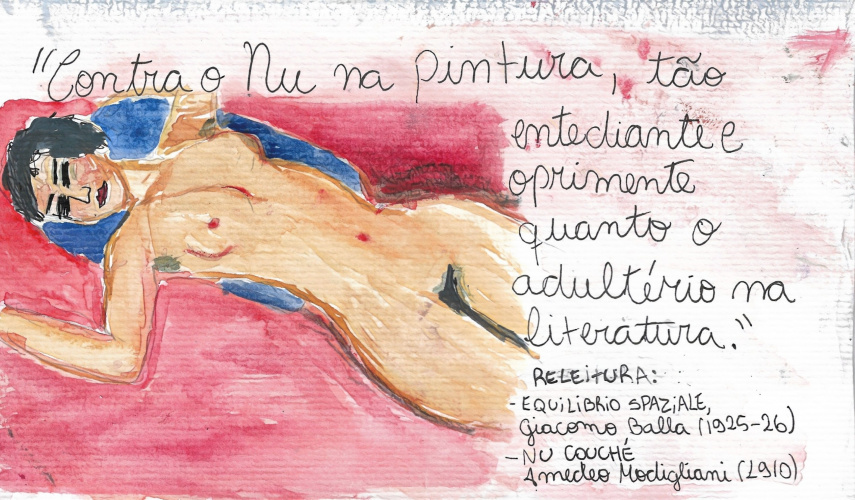 "Contra o Nu na pintura, tão
entediante e
oprimente
quanto o
adultério na
literatura."
RELEITURA:
- EQUILIBRIO SPAZIALE,
Giacomo Balla (1925-26)
- NU COUCHÉ
Amedeo Modigliani (1910)